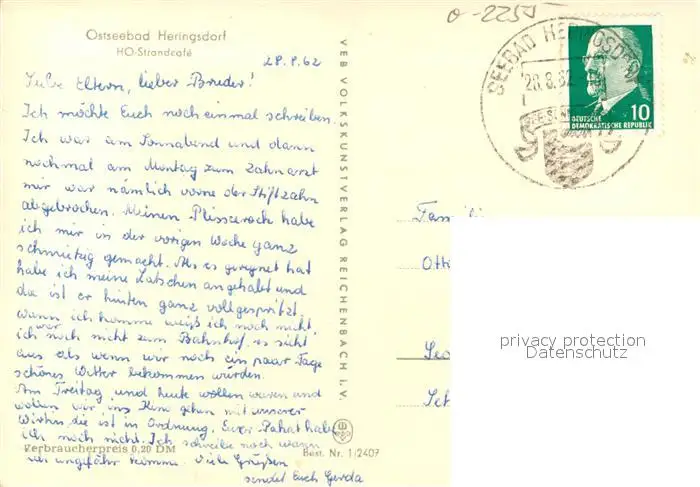 o-2255
Ostseebad Heringsdorf
HO-Strandcafé
SEEBAD HERINGSDORF
28.8.62
10
DEUTSCHE
DEMOKRATISCHE REPUBLIK
28.8.62
Liebe Eltern, lieber Bruder!
Ich möchte Euch noch einmal schreiben.
Ich war am Sonnabend und dann
nochmal am Montag zum Zahnarzt
mir war nämlich vorne der Stiftzahn
abgebrochen. Meinen Plisseerock habe
ich mir in der vorigen Woche ganz
schmutzig gemacht. Als es geregnet hat
habe ich meine Latschen angehabt und
da ist er hinten ganz vollgespritzt.
Wann ich komme weiß ich noch nicht,
ich war noch nicht zum Bahnhof, es sieht
aus als wenn wir noch ein paar Tage
schönes Wetter bekommen würden.
Am Freitag und heute wollen waren und
wollen wir ins Kino gehen mit unserer
Wirtin, die ist in Ordnung. Euer Paket habe
ich noch nicht. Ich schreibe noch wann
ich ungefähr komme. Viele Grüßen
sendet Euch Gerda
Verbraucherpreis 0,20 DM
Best. Nr. 1/2407
VEB VOLKSKUNSTVERLAG REICHENBACH I. V.
Famili
Otto
Seo
Set
privacy protection
Datenschutz